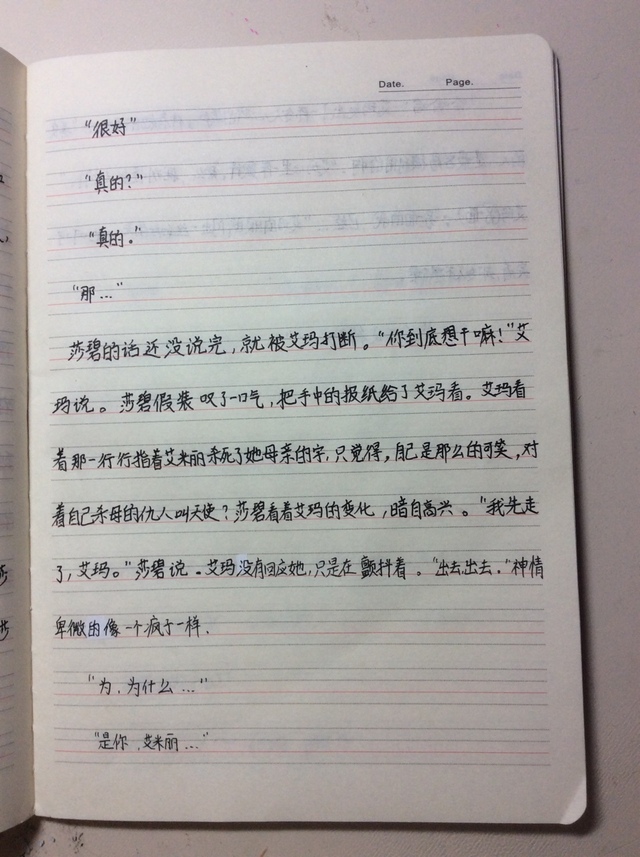 Date. Page.
"很好"
"真的？"
"真的。"
"那…"
莎碧的话还没说完，就被艾玛打断。"你到底想干嘛！"艾
玛说。莎碧假装叹了一口气，把手中的报纸给了艾玛看。艾玛看
着那一行行指着艾米丽杀死了她母亲的字，只觉得，自己是那么的可笑，对
着自己杀母的仇人叫天使？莎碧看着艾玛的变化，暗自高兴。"我先走
了，艾玛。"莎碧说。艾玛没有回应她，只是在颤抖着。"出去，出去。"神情
卑微的像一个疯子一样.
"为，为什么…"
"是你，艾米丽…"